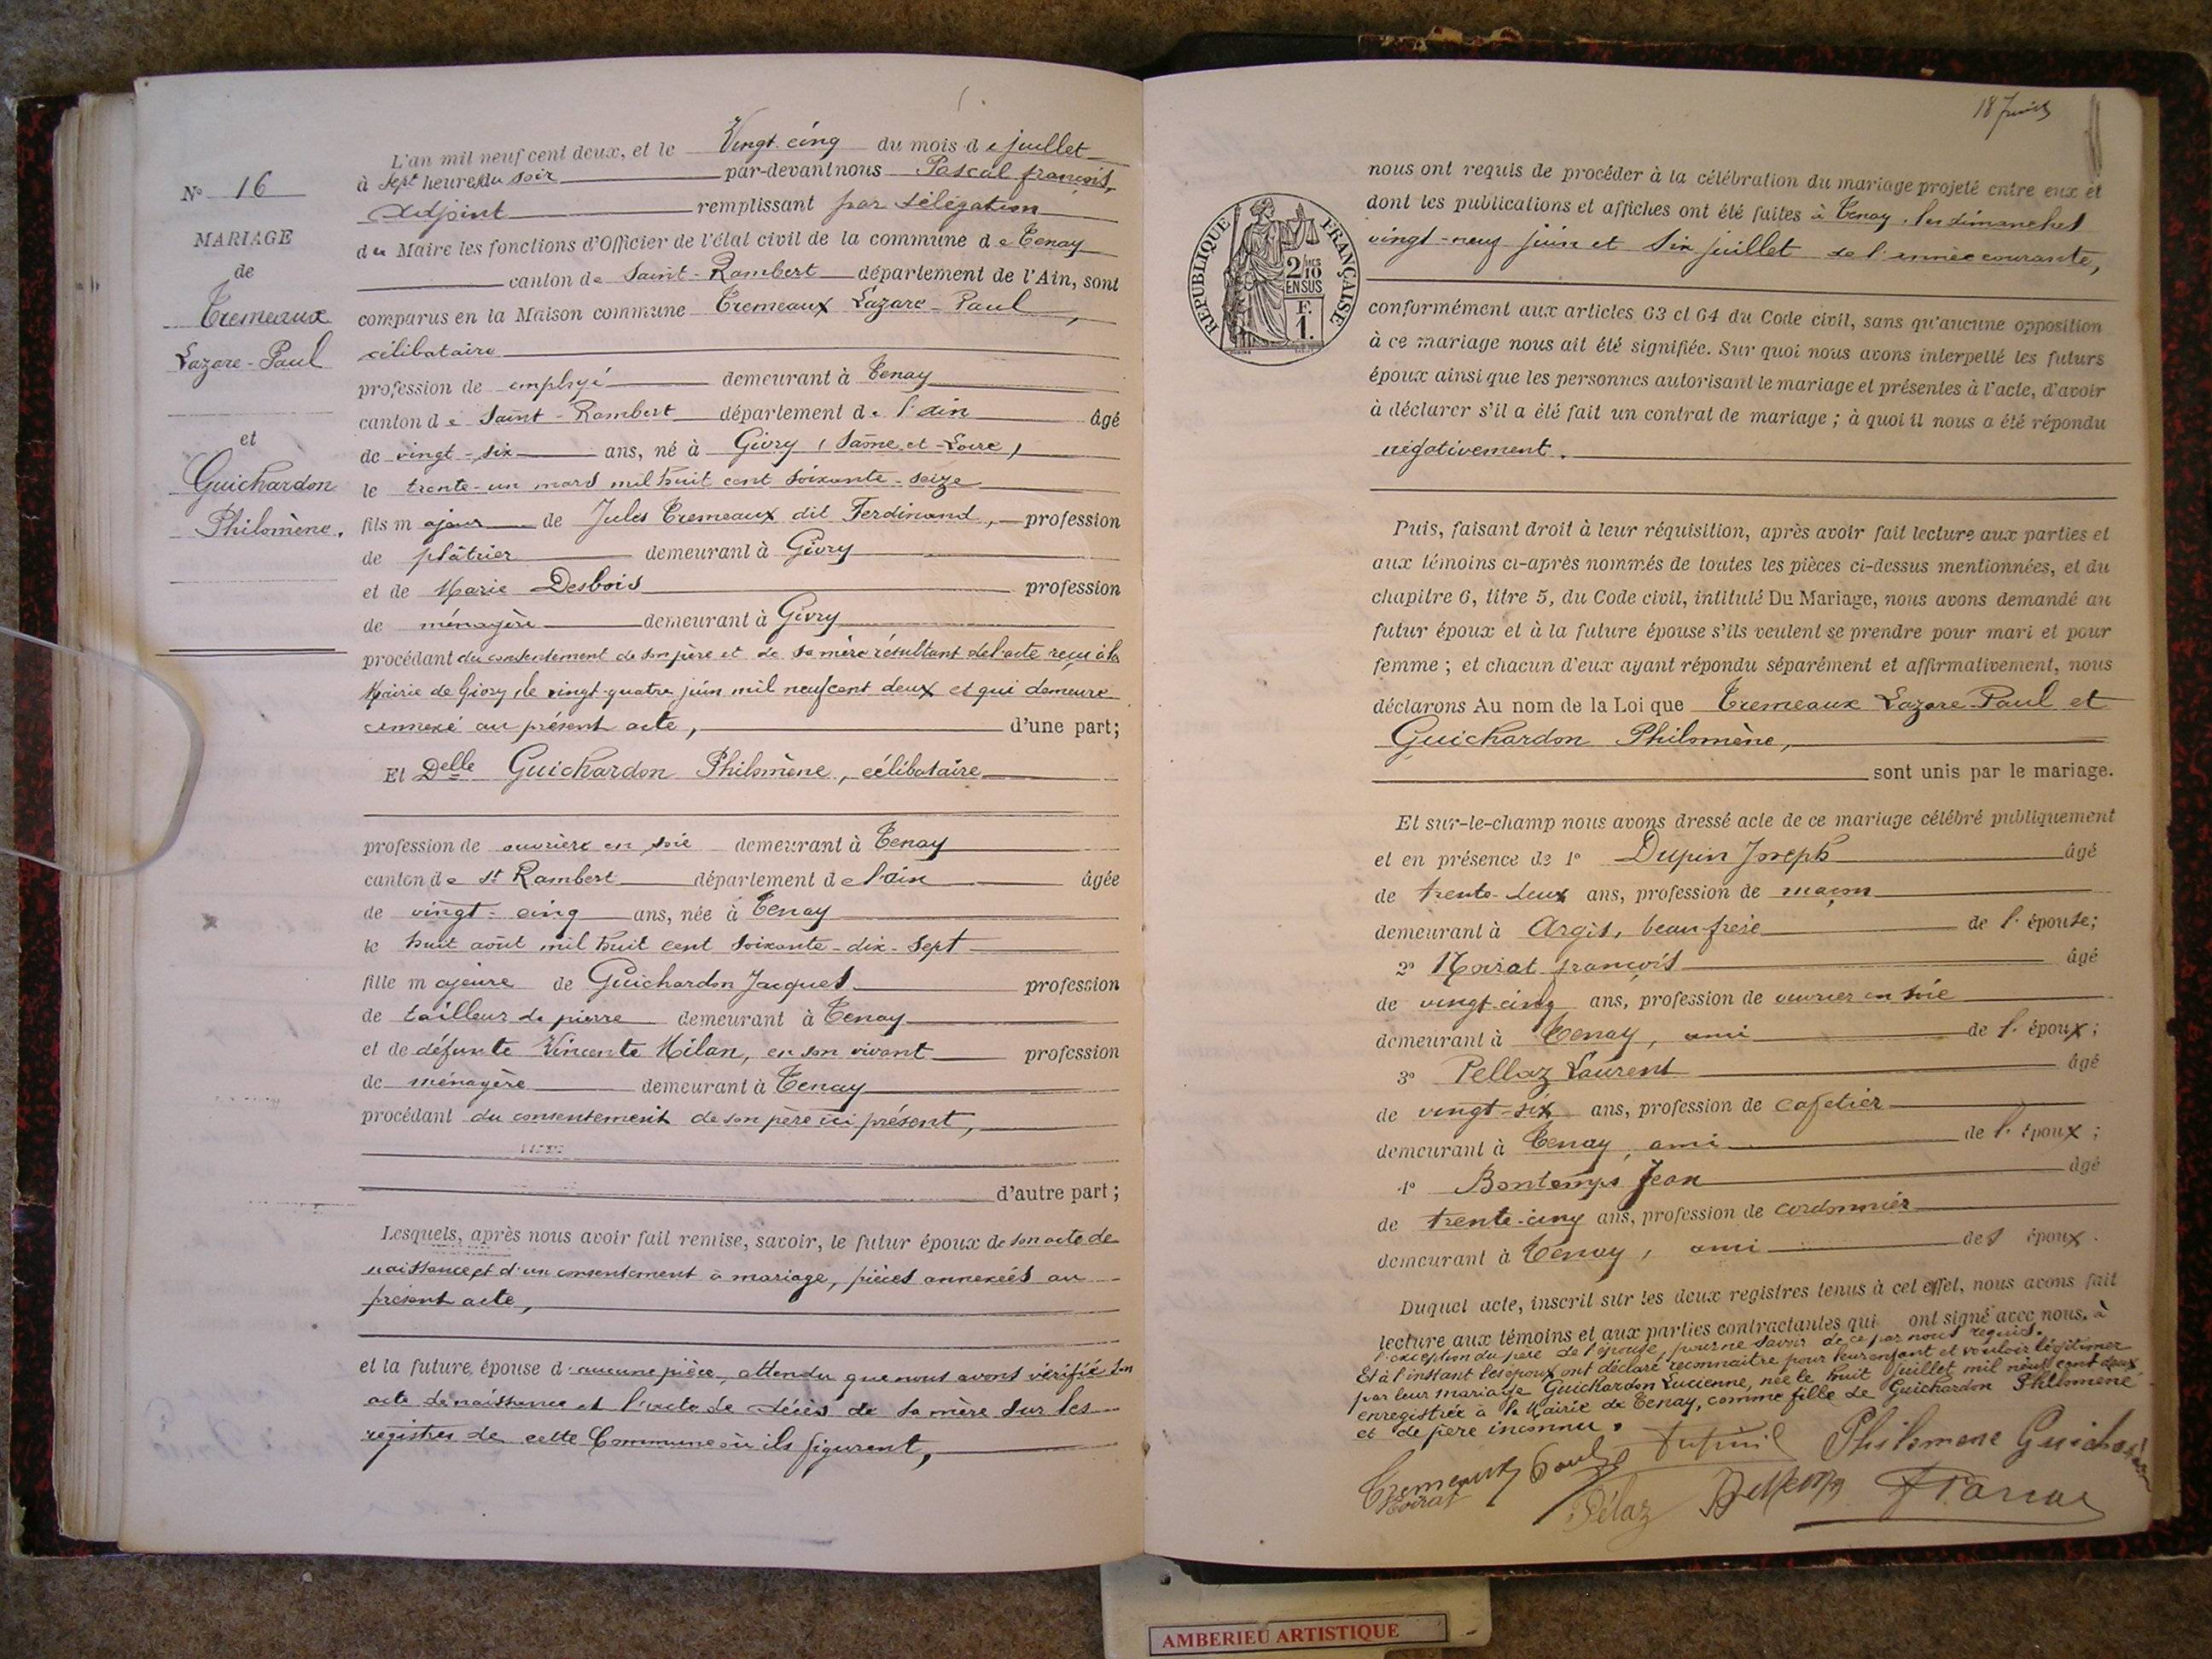 N° 16
MARIAGE
de
Tremeaux
Lazare-Paul
et
Guichardon
Philomène.
L'an mil neuf cent deux, et le Vingt cinq du mois de juillet
à sept heures du soir par-devant nous Pascal françois,
adjoint remplissant par délégation
du Maire les fonctions d'Officier de l'état civil de la commune de Tenay
canton de Saint-Rambert département de l'Ain, sont
comparus en la Maison commune Tremeaux Lazare-Paul,
célibataire
profession de employé demeurant à Tenay
canton de Saint-Rambert département de l'ain âgé
de vingt-six ans, né à Givry (Saône-et-Loire)
le trente-un mars mil huit cent soixante-seize
fils majeur de Jules Tremeaux dit Ferdinand, profession
de plâtrier demeurant à Givry
et de Marie Desbois profession
de ménagère demeurant à Givry
procédant du consentement de son père et de sa mère résultant de l'acte reçu à la
Mairie de Givry, le vingt-quatre juin mil neuf cent deux et qui demeure
annexé au présent acte, d'une part;
Et Delle Guichardon Philomène, célibataire
profession de ouvrière en soie demeurant à Tenay
canton de St Rambert département de l'ain âgée
de vingt-cinq ans, née à Tenay
le huit août mil huit cent soixante-dix-sept
fille majeure de Guichardon Jacques profession
de tailleur de pierre demeurant à Tenay
et de défunte Vincente Milan, en son vivant profession
de ménagère demeurant à Tenay
procédant du consentement de son père ici présent,
d'autre part;
Lesquels, après nous avoir fait remise, savoir, le futur époux de son acte de
naissance et d'un consentement à mariage, pièces annexées au
présent acte,
et la future épouse d'aucune pièce, attendu que nous avons vérifié son
acte de naissance et l'acte de décès de sa mère sur les
registres de cette Commune où ils figurent,
18 Juin
REPUBLIQUE FRANÇAISE
2/10
EN SUS
F.
1.
nous ont requis de procéder à la célébration du mariage projeté entre eux et
dont les publications et affiches ont été faites à Tenay, les dimanches
vingt-neuf juin et six juillet de l'année courante,
conformément aux articles 63 et 64 du Code civil, sans qu'aucune opposition
à ce mariage nous ait été signifiée. Sur quoi nous avons interpellé les futurs
époux ainsi que les personnes autorisant le mariage et présentes à l'acte, d'avoir
à déclarer s'il a été fait un contrat de mariage; à quoi il nous a été répondu
négativement.
Puis, faisant droit à leur réquisition, après avoir fait lecture aux parties et
aux témoins ci-après nommés de toutes les pièces ci-dessus mentionnées, et du
chapitre 6, titre 5, du Code civil, intitulé Du Mariage, nous avons demandé au
futur époux et à la future épouse s'ils veulent se prendre pour mari et pour
femme; et chacun d'eux ayant répondu séparément et affirmativement, nous
déclarons Au nom de la Loi que Tremeaux Lazare-Paul et
Guichardon Philomène,
sont unis par le mariage.
Et sur-le-champ nous avons dressé acte de ce mariage célébré publiquement
et en présence de 1° Dupin Joseph âgé
de trente-deux ans, profession de maçon
demeurant à Argis, beau frère de l'épouse;
2° Moirat françois âgé
de vingt-cinq ans, profession de ouvrier en soie
demeurant à Tenay, ami de l'époux;
3° Pellaz Laurent âgé
de vingt-six ans, profession de cafetier
demeurant à Tenay, ami de l'époux;
4° Bontemps Jean âgé
de trente-cinq ans, profession de cordonnier
demeurant à Tenay, ami des époux.
Duquel acte, inscrit sur les deux registres tenus à cet effet, nous avons fait
lecture aux témoins et aux parties contractantes qui ont signé avec nous, à
l'exception du père de l'épouse, pour ne savoir de ce par nous requis.
Et à l'instant les époux ont déclaré reconnaitre pour leur enfant et vouloir légitimer
par leur mariage Guichardon Lucienne, née le huit Juillet mil neuf cent deux
enregistrée à la Mairie de Tenay, comme fille de Guichardon Philomène
et de père inconnu.
Tremeaux Paul Philomene Guichardon
Moirat Pélaz
AMBERIEU ARTISTIQUE